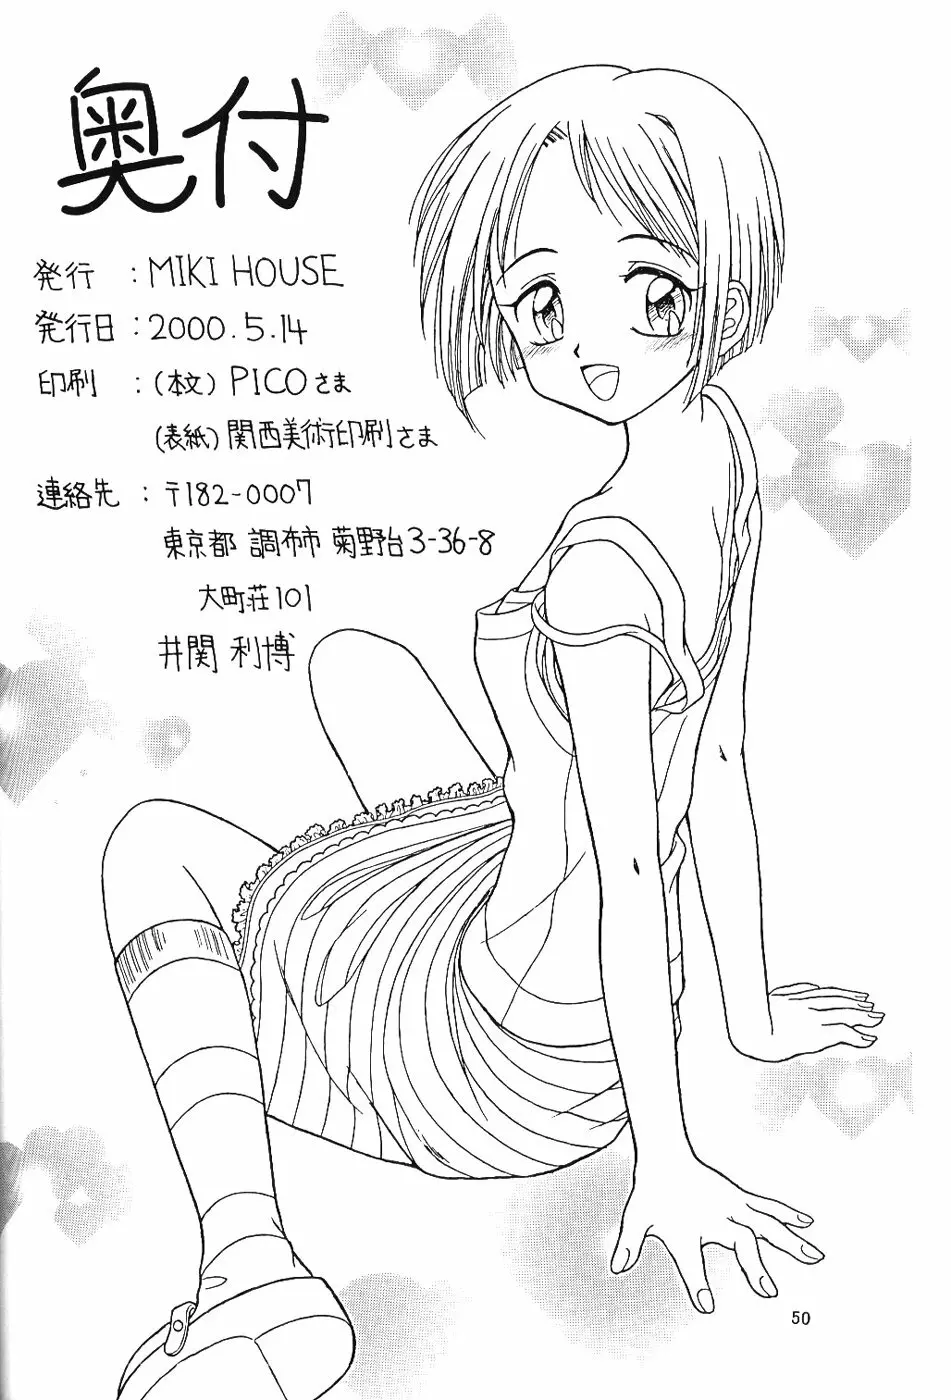 奥付
発行 : MIKI HOUSE
発行日 : 2000.5.14
印刷 : (本文) PICOさま
(表紙) 関西美術印刷さま
連絡先 : 〒182-0007
東京都 調布市 菊野台3-36-8
大町荘101
井関 利博
50